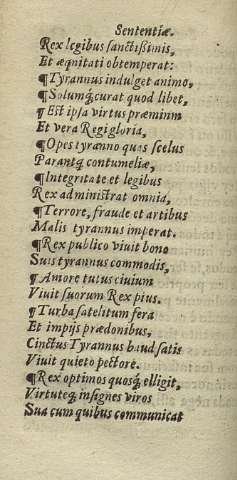 Sententiæ.
Rex legibus sanctißimis,
Et æquitati obtemperat:
¶Tyrannus indulget animo,
¶Solumq́; curat quod libet,
¶Est ipsa virtus præmium
Et vera Regi gloria,
¶Opes tyranno quas scelus
Parantq́; contumeliæ,
¶Integritate et legibus
Rex administrat omnia,
¶Terrore, fraude et artibus
Malis tyrannus imperat.
¶Rex publico viuit bono
Suis tyrannus commodis,
¶Amore tutus ciuium
Viuit suorum Rex pius.
¶Turba satelitum fera
Et impijs prædonibus,
Cinctus Tyrannus haud satis
Viuit quieto pectore.
¶Rex optimos quosq́; elligit,
Virtuteq́; insignes viros
Sua cum quibus communicat